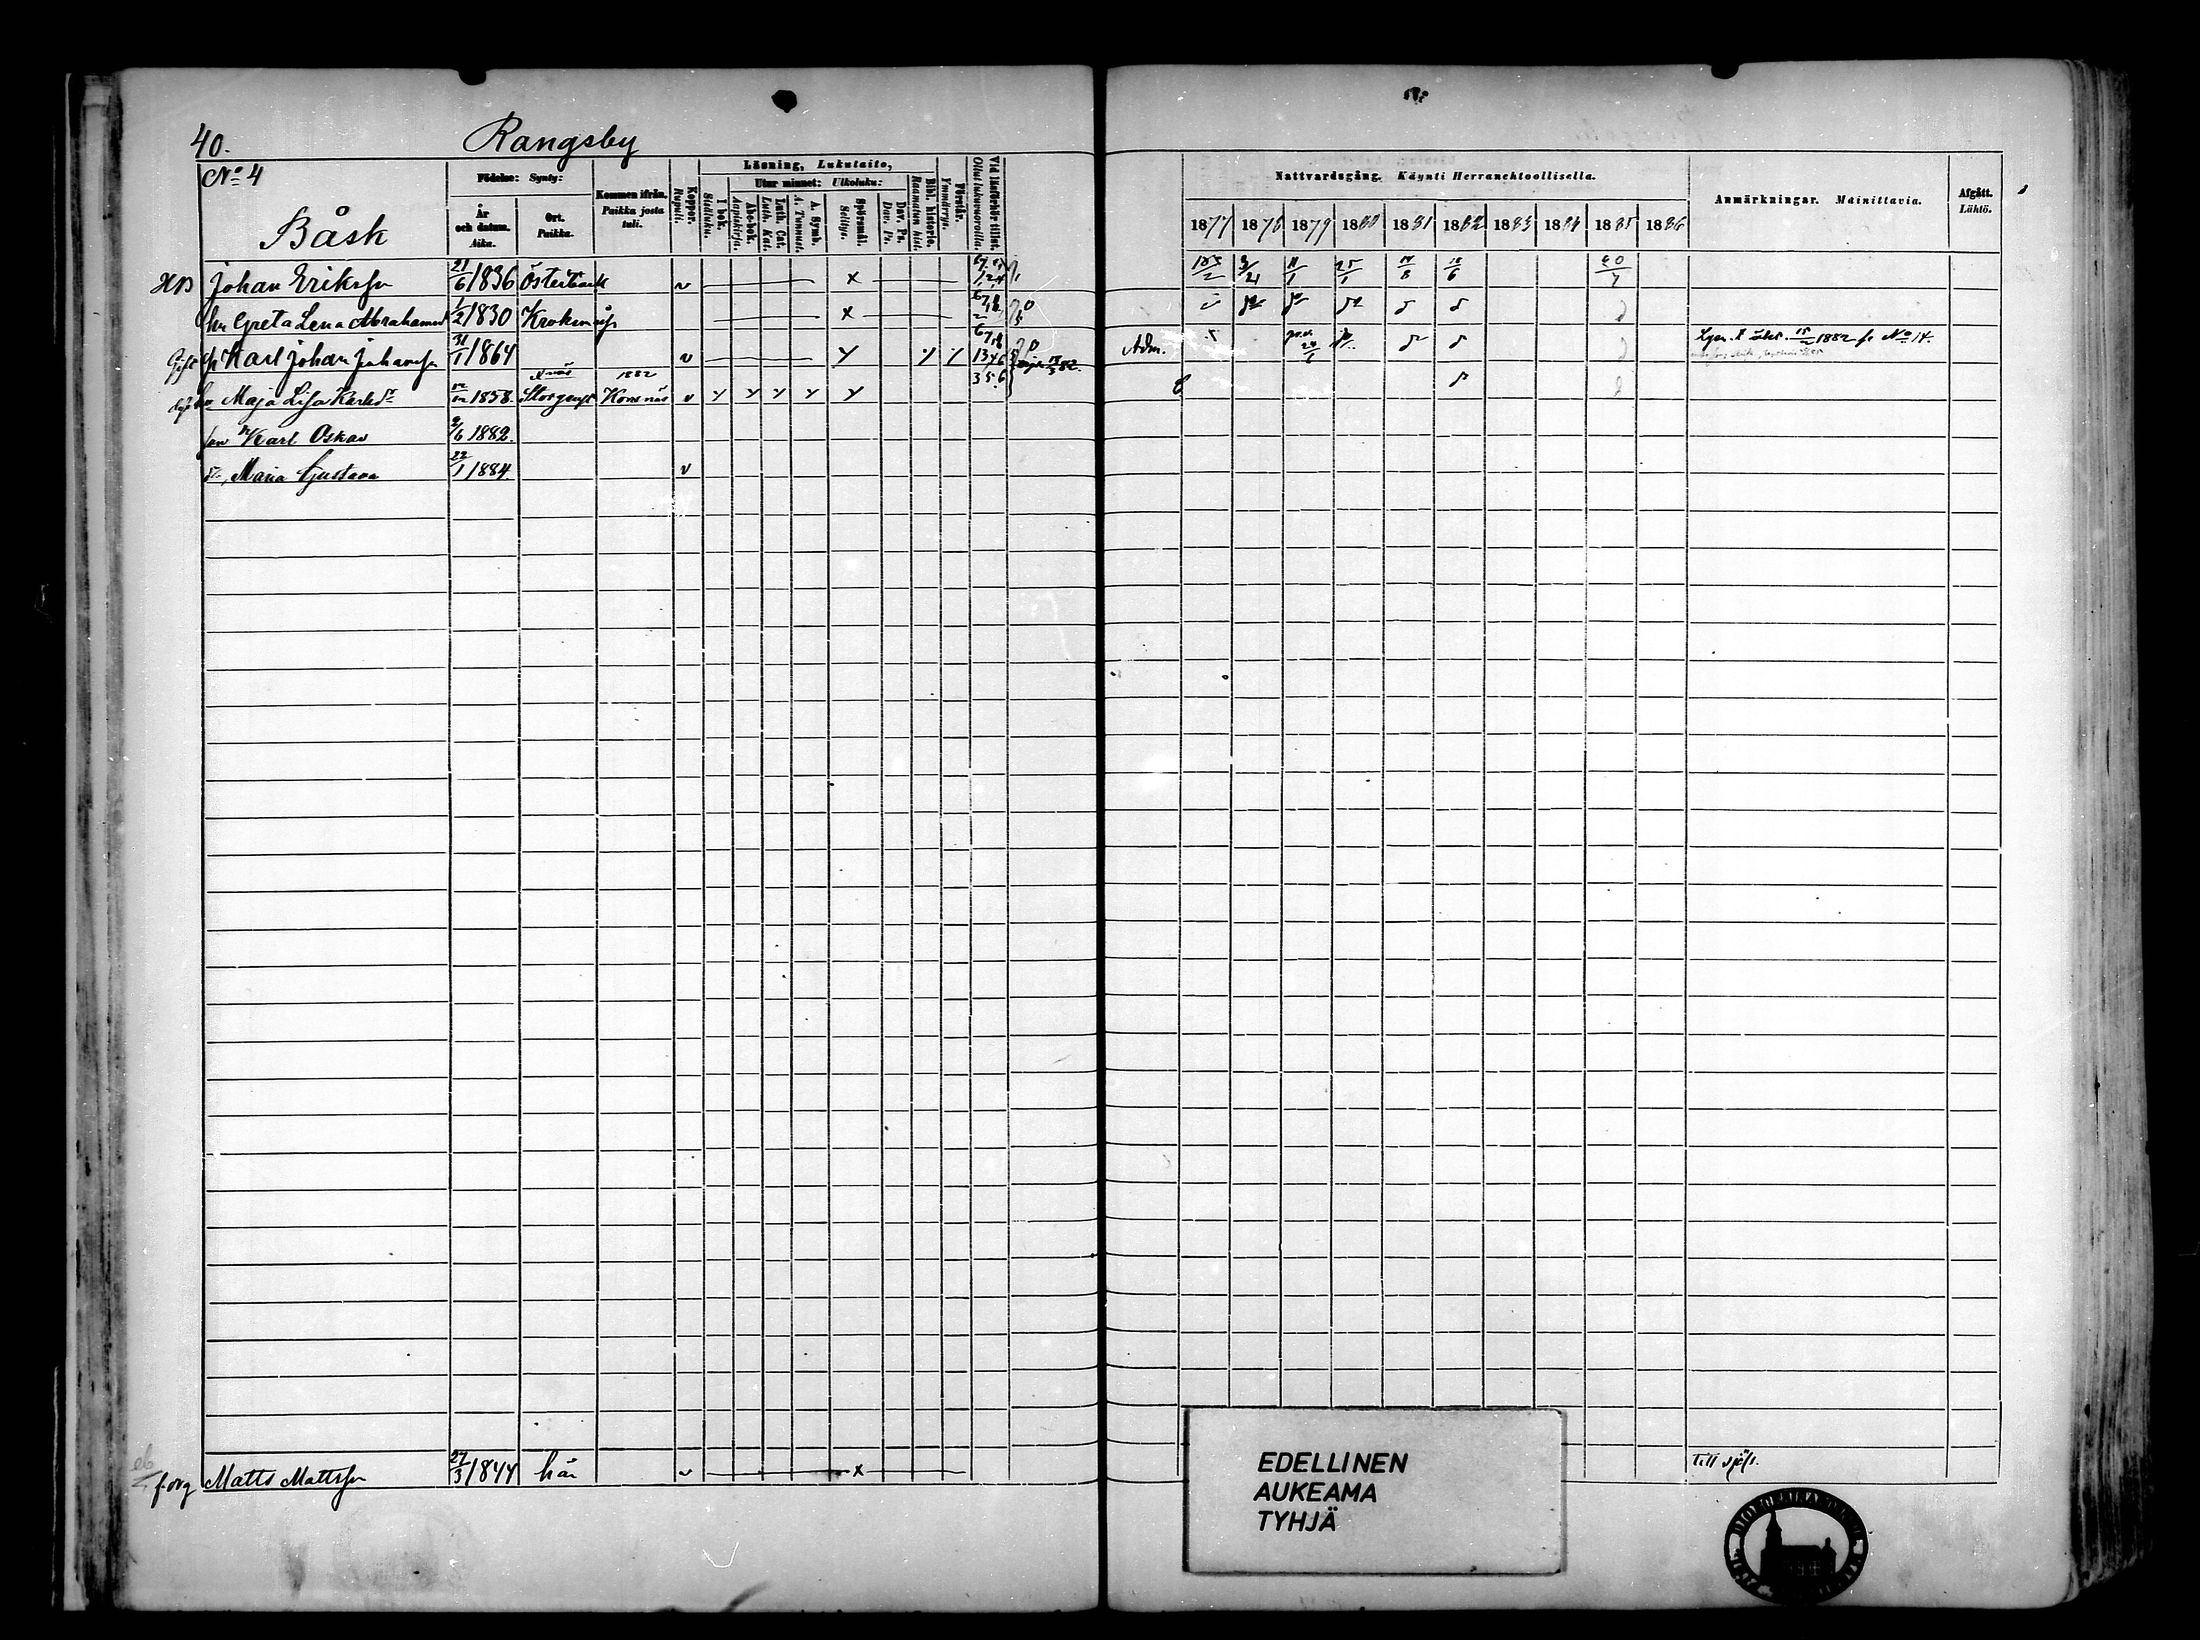 40.
Rangsby
No 4
Båsk
Födelse: Synty:
År och datum. Aika.
Ort. Paikka.
Kommen ifrån. Paikka josta tuli.
Koppor. Rupuli.
Läsning, Lukutaito,
I bok. Sisäluku.
Utur minnet: Ulkoluku:
Abc-bok. Aapiskirja.
Luth. Cat. Luth. Kat.
A. Symb. A. Tunnust.
Spörsmål. Selitys.
Dav. Ps. Dav. Ps.
Bibl. historie. Raamatun hist.
Förstår. Ymmärrys.
Vid läsförhör tillst. Ollut lukuvuoroilla.
Nattvardsgång. Käynti Herranehtoollisella.
1877 1878 1879 1880 1881 1882 1883 1884 1885 1886
Anmärkningar. Muinittavia.
Afgått. Lähtö.
Johan Eriksson 21/6 1836 Österback
hu Greta Lena Abrahamsd 1/2 1830 Kroksnäs
Gift Karl Johan Johansson 31/1 1864 Adm. 1882 fr No 14.
Maja Lisa Karlsdr 1858. Korsnäs 1882
son Karl Oskar 2/6 1882.
dr, Maria Gustava 22/1 1884.
Matts Mattsson 27/3 1844 här till sjös.
EDELLINEN
AUKEAMA
TYHJÄ